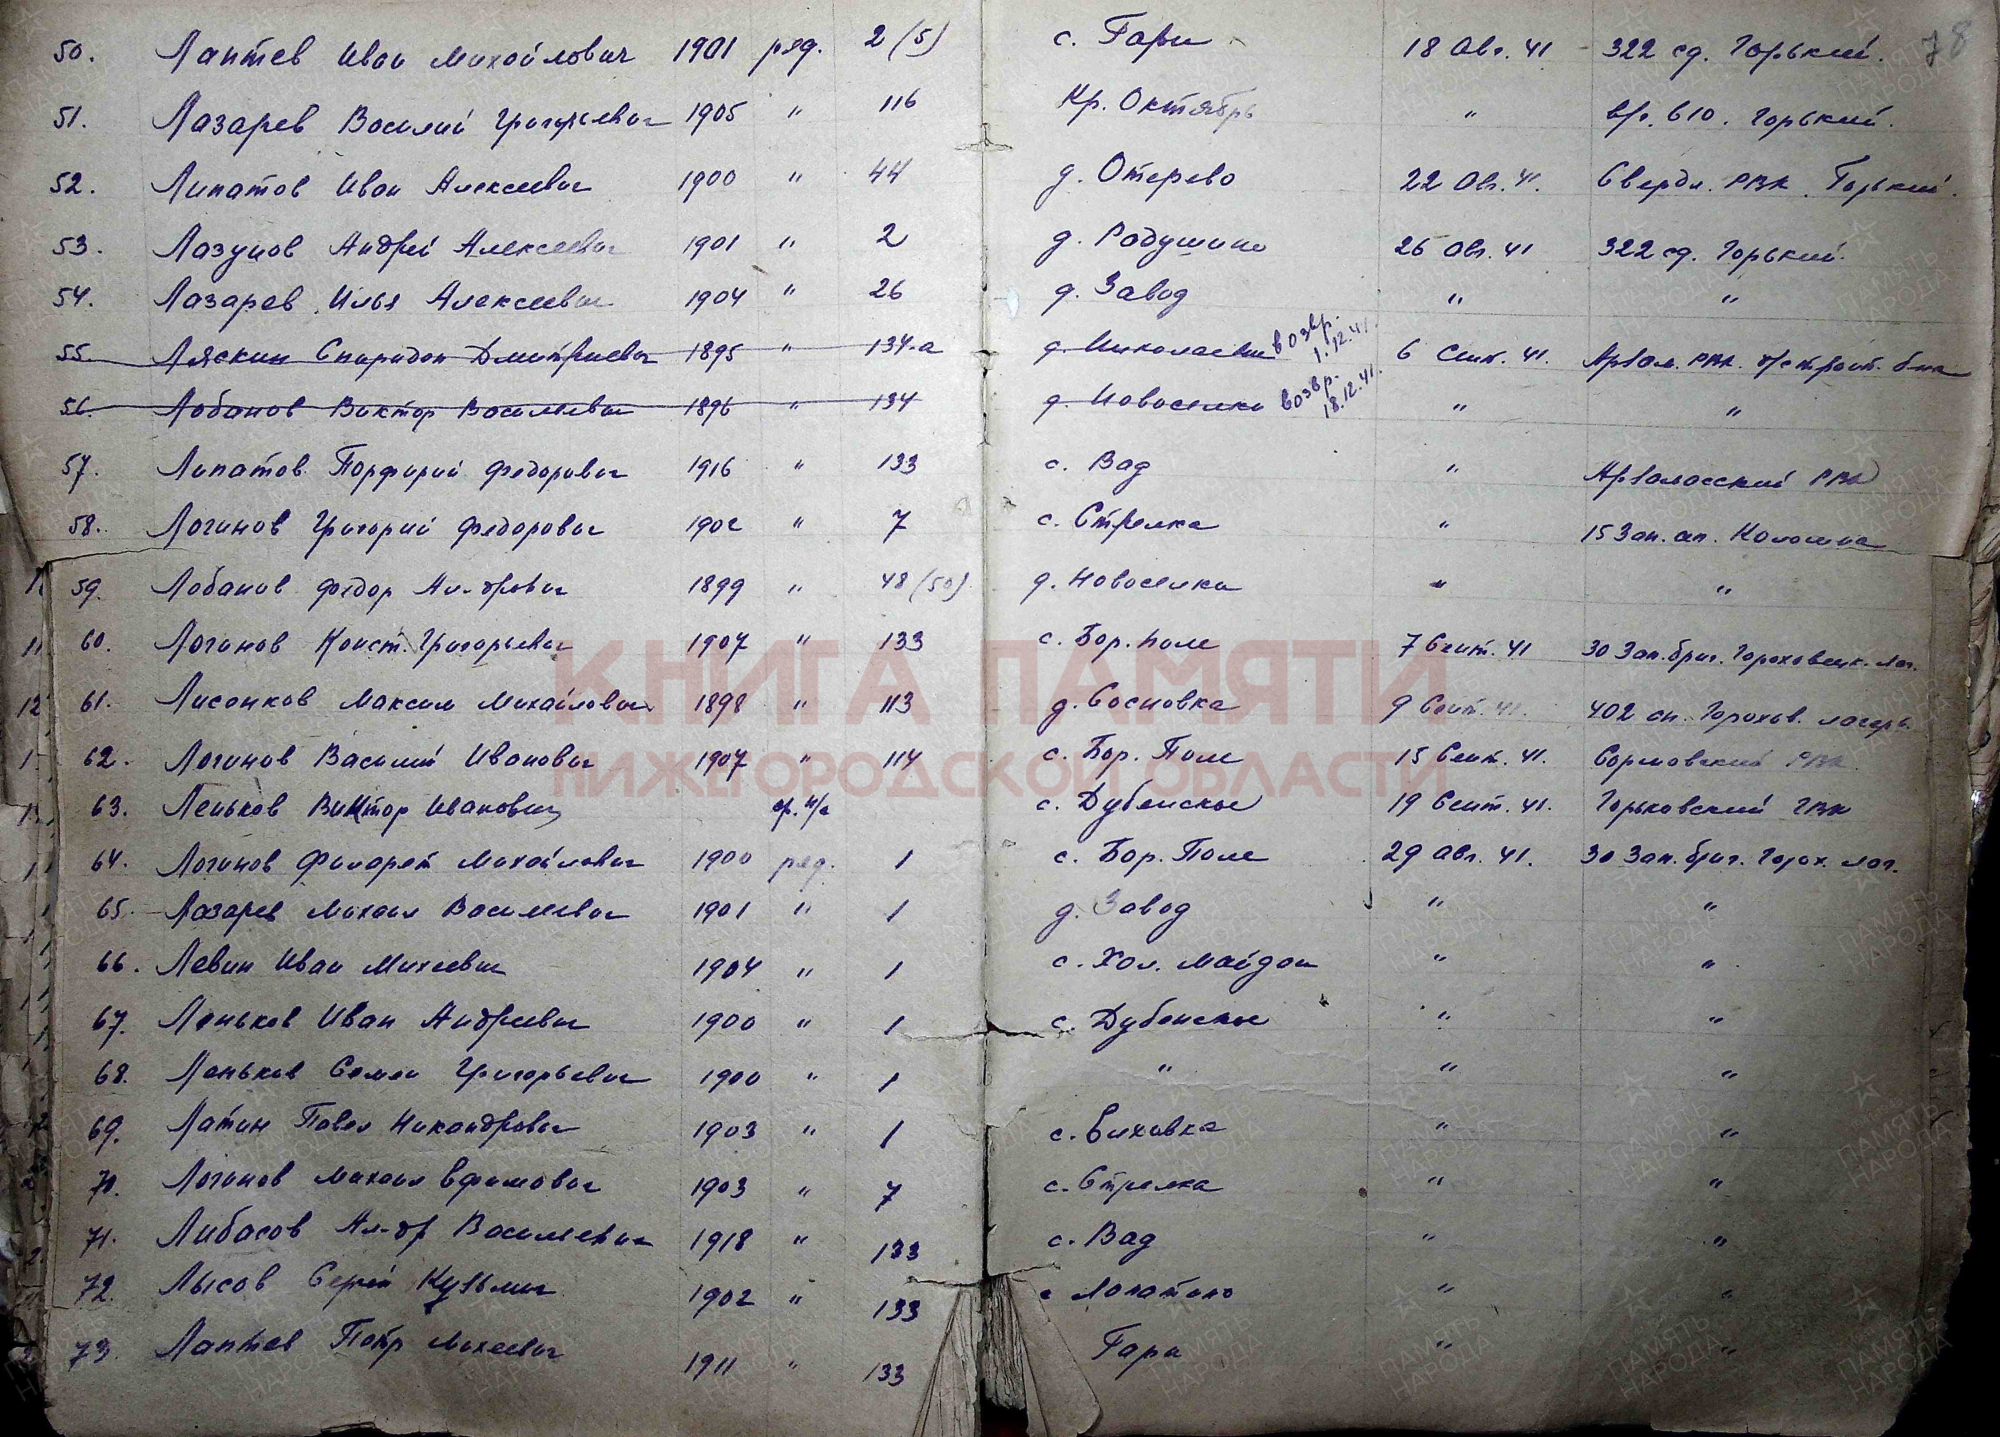 78
50. Лаптев Иван Михайлович 1901 ряд. 2 (5) с. Гари 18 Авг. 41 322 сд. Горький.
51. Лазарев Василий Григорьевич 1905 " 116 Кр. Октябрь " в/ч. 610. Горький.
52. Липатов Иван Алексеевич 1900 " 44 д. Отерево 22 Авг. 41. Свердл. РВК. Горький.
53. Лазунов Андрей Алексеевич 1901 " 2 д. Радушино 26 Авг. 41 322 сд. Горький.
54. Лазарев Илья Алексеевич 1904 " 26 д. Завод " "
55. Ляскин Спиридон Дмитриевич 1895 " 134-а д. Николаевка возвр. 1.12.41. 6 Сент. 41. Арзам. РВК. б-на
56. Лобанов Виктор Васильевич 1896 " 134 д. Новоселки возвр. 18.12.41. " "
57. Липатов Порфирий Федорович 1916 " 133 с. Вад " Арзамасский РВК
58. Логинов Григорий Федорович 1902 " 7 с. Стрелка " 15 Зап. сп. Коломна
59. Лобанов Федор Ал-дрович 1899 " 48 (50) д. Новоселки " "
60. Логинов Конст. Григорьевич 1907 " 133 с. Бор. Поле 7 Сент. 41 30 Зап. бриг. Гороховецк. лаг.
61. Лисенков Максим Михайлович 1898 " 113 д. Сосновка 9 Сент. 41. 402 сп. Горохов. лагерь.
62. Логинов Василий Иванович 1907 " 114 с. Бор. Поле 15 Сент. 41. Сормовский РВК
63. Леньков Виктор Иванович ср. н/с с. Дубенское 19 Сент. 41. Горьковский ГВК
64. Логинов Филарет Михайлович 1900 ряд. 1 с. Бор. Поле 29 Авг. 41. 30 Зап. бриг. Горох. лаг.
65. Лазарев Михаил Васильевич 1901 " 1 д. Завод " "
66. Левин Иван Михеевич 1904 " 1 с. Хол. Майдан " "
67. Леньков Иван Андреевич 1900 " 1 с. Дубенское " "
68. Леньков Семен Григорьевич 1900 " 1 " " "
69. Лапин Павел Никандрович 1903 " 1 с. Елховка " "
70. Логинов Михаил Ефимович 1903 " 7 с. Стрелка " "
71. Либасов Ал-др Васильевич 1918 " 133 с. Вад " "
72. Лысов Сергей Кузьмич 1902 " 133 с Лопатино " "
73. Лаптев Петр Михеевич 1911 " 133 Гари " "
КНИГА ПАМЯТИ
НИЖЕГОРОДСКОЙ ОБЛАСТИ
ПАМЯТЬ НАРОДА